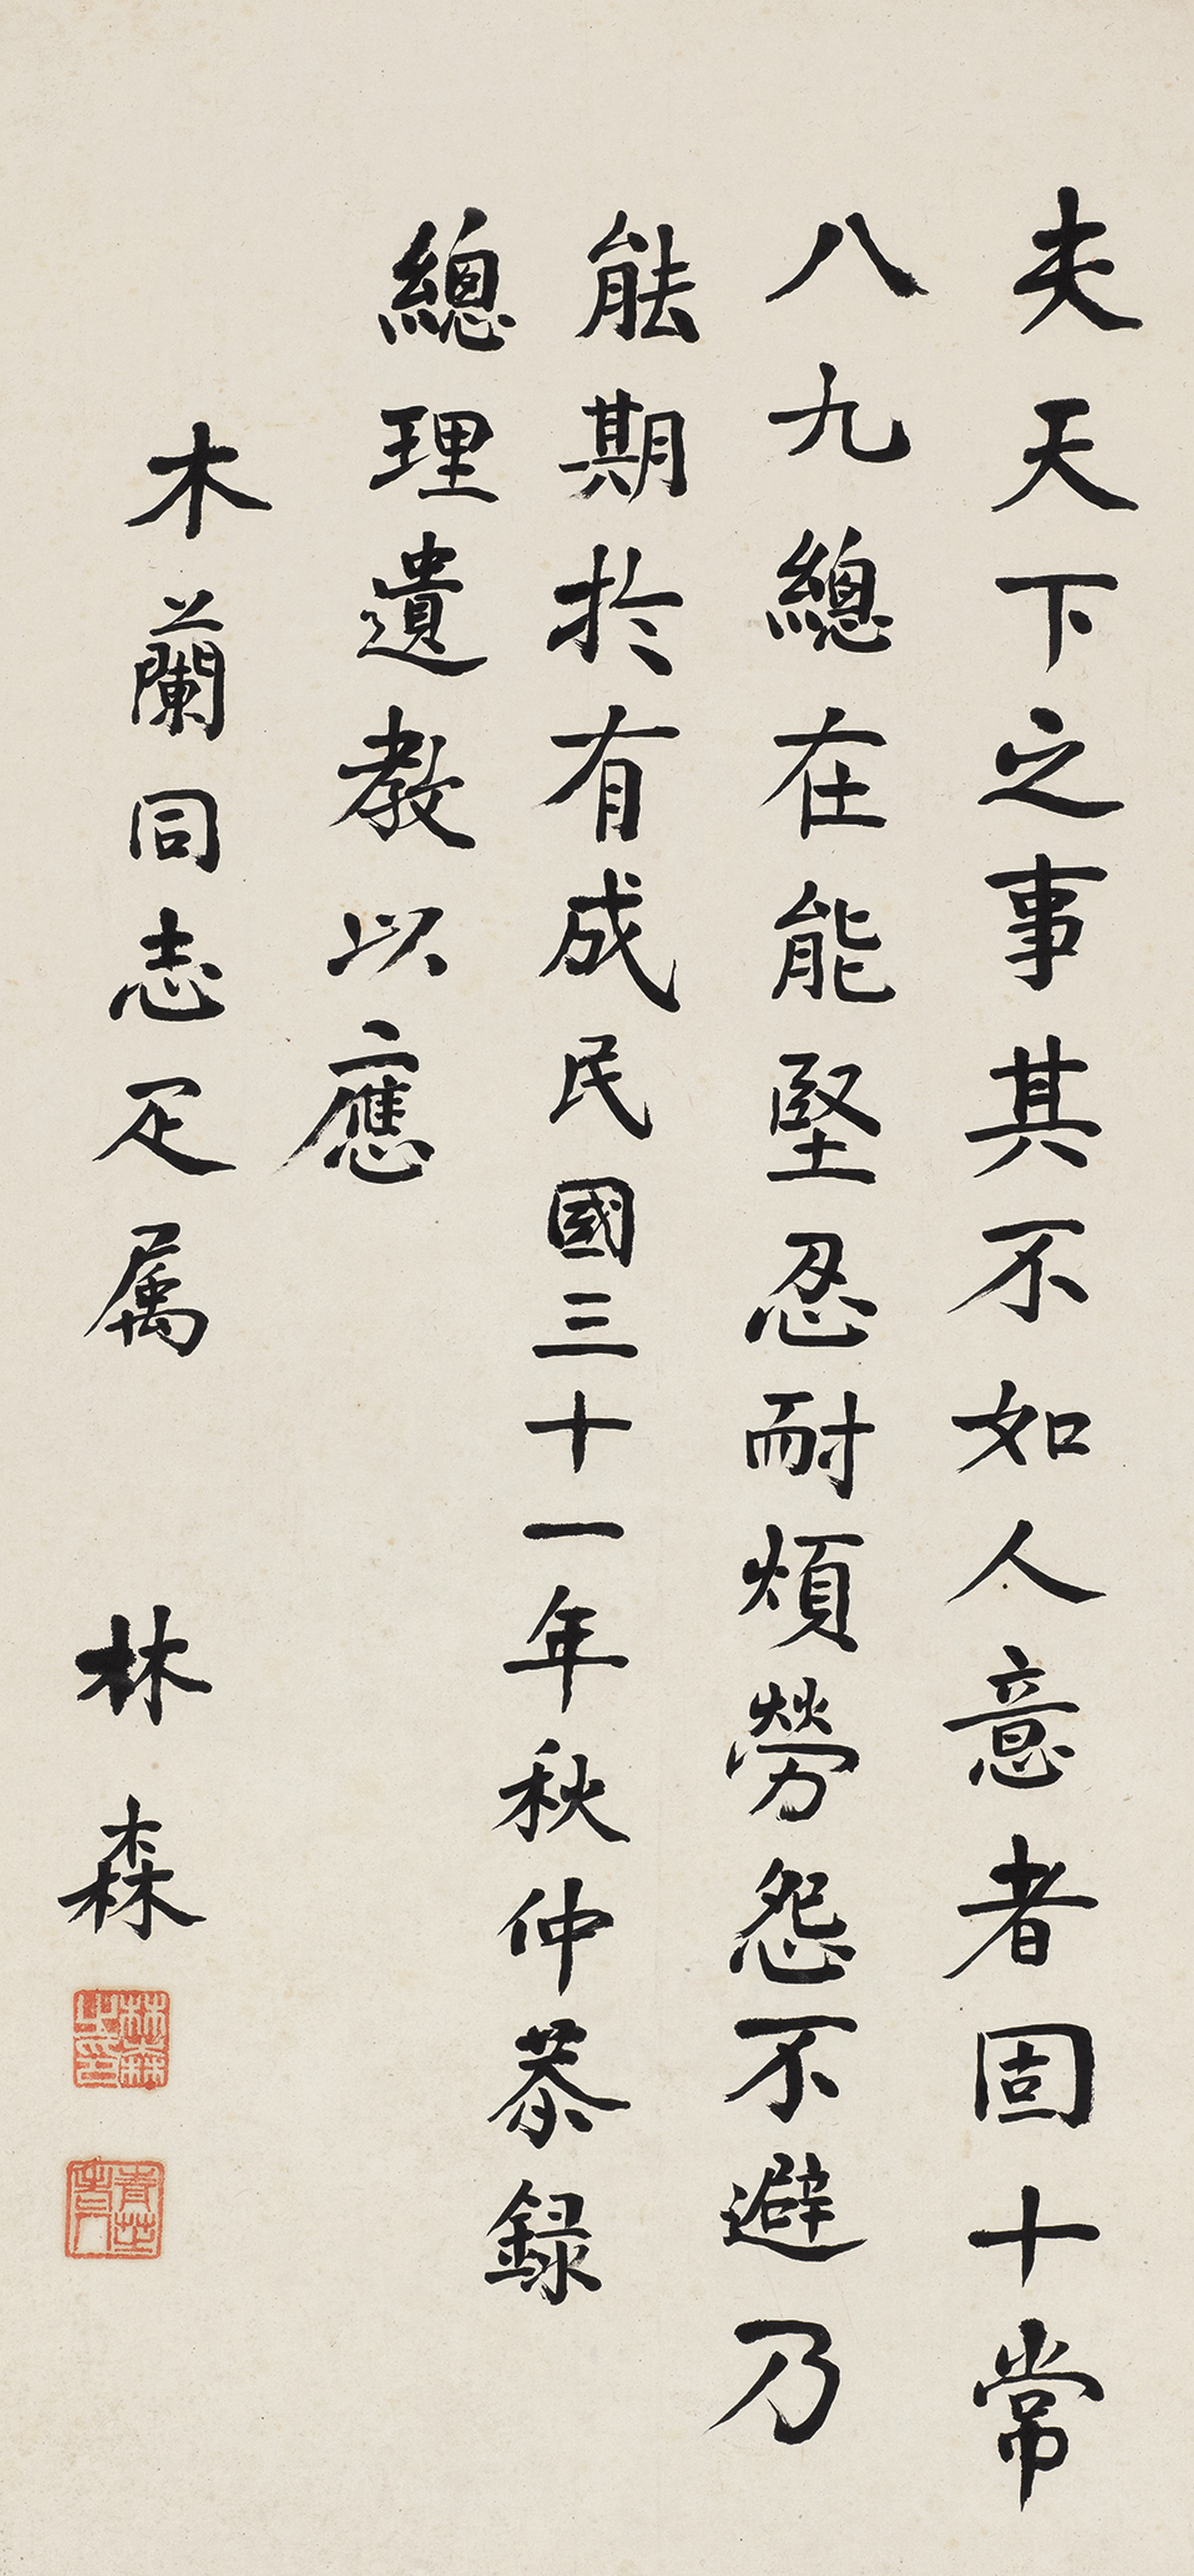 夫天下之事其不如人意者固十常
八九總在能堅忍耐煩勞怨不避乃
能期於有成民國三十一年秋仲恭録
總理遺教以應
木蘭同志疋属
林森
林森之印